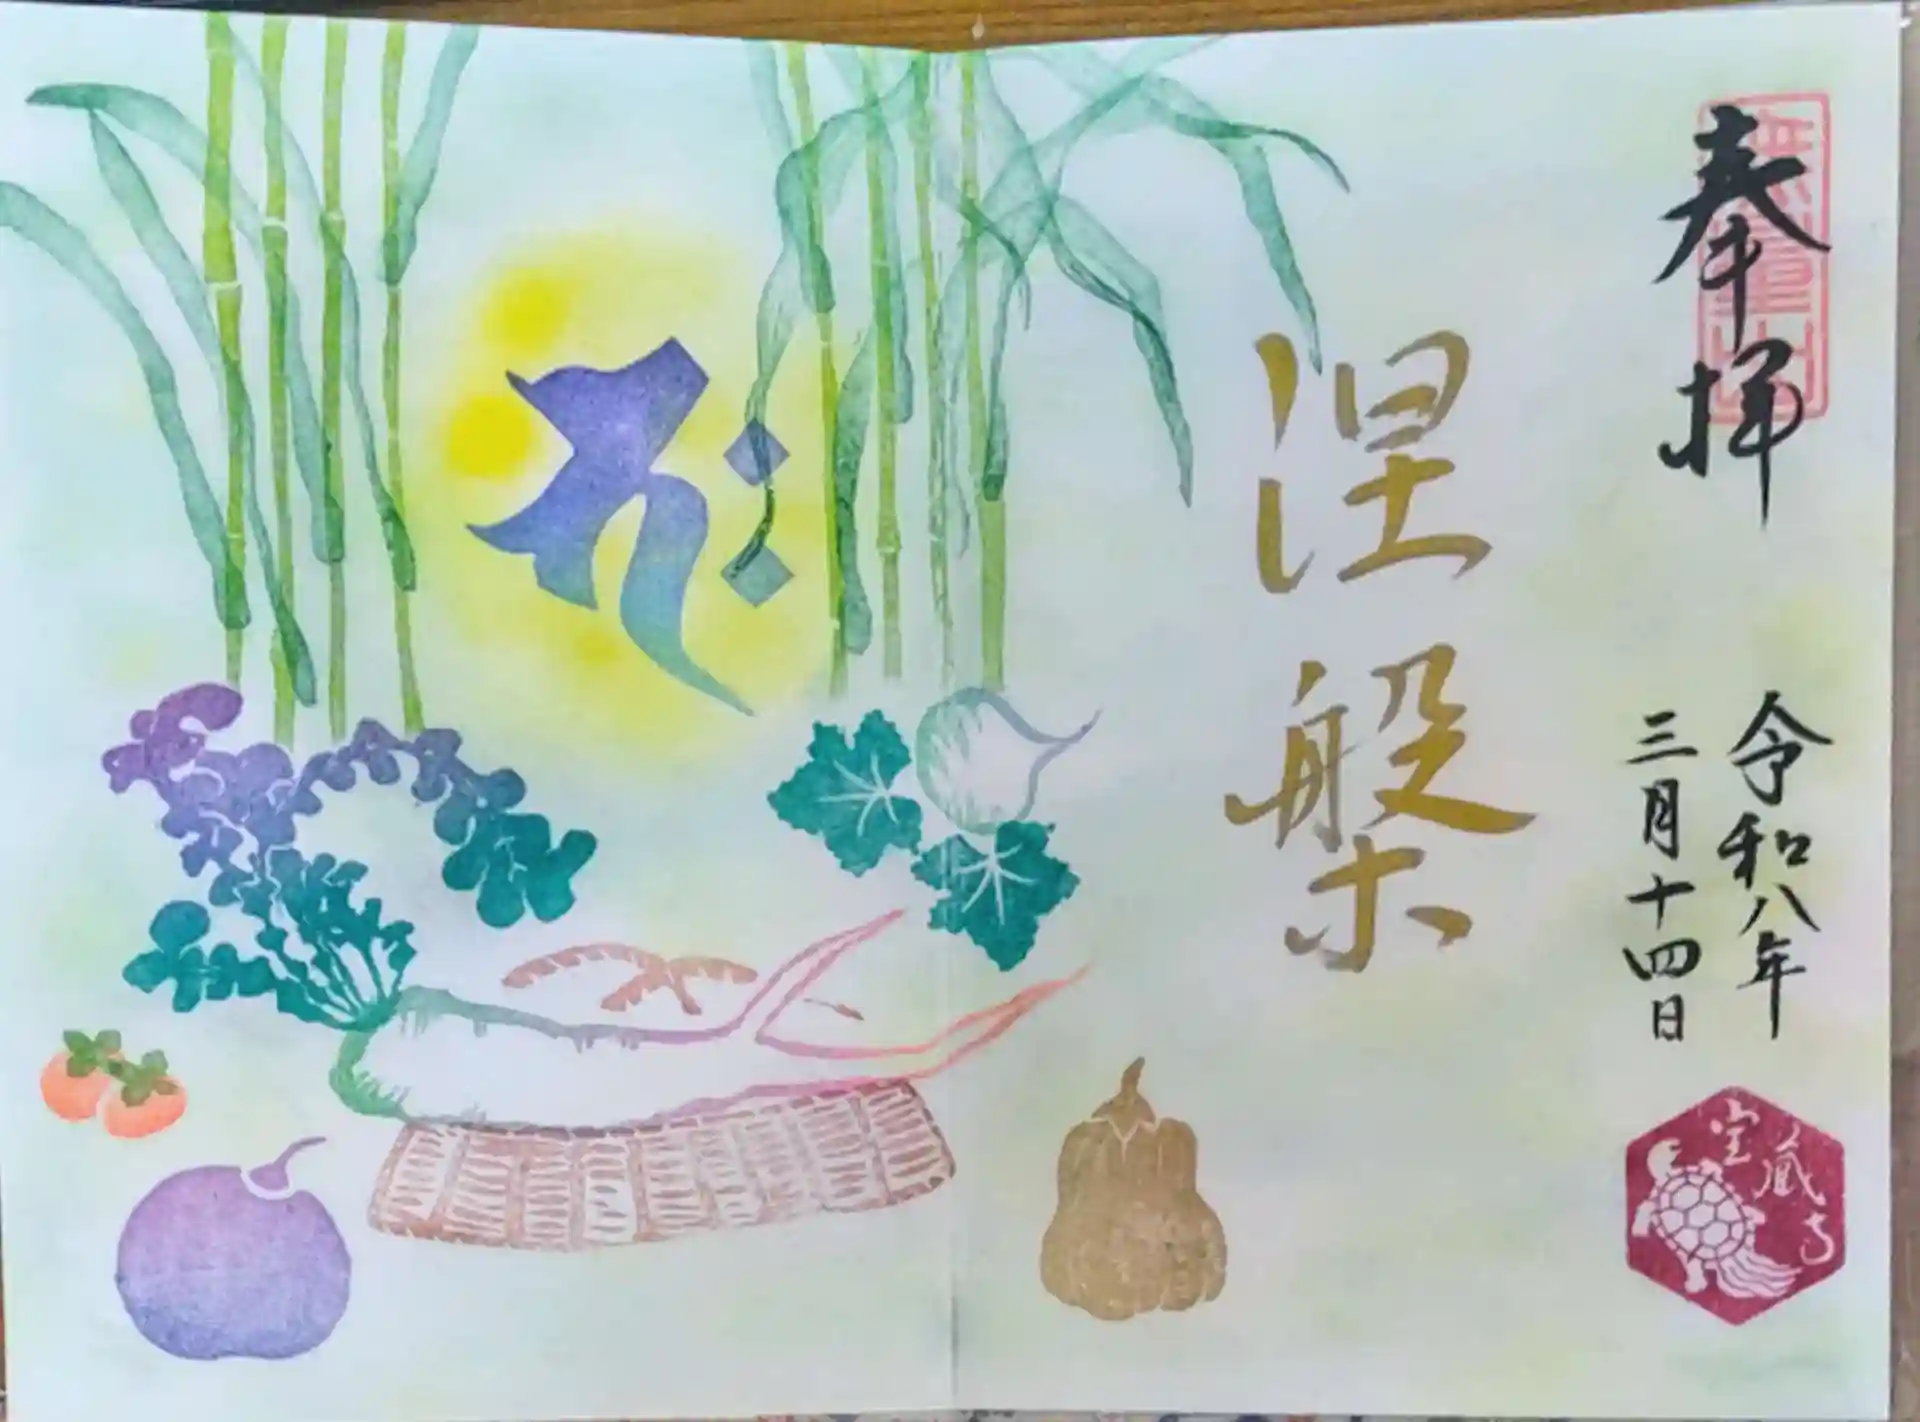 奉拝
令和八年
三月十四日
涅槃
宝蔵寺